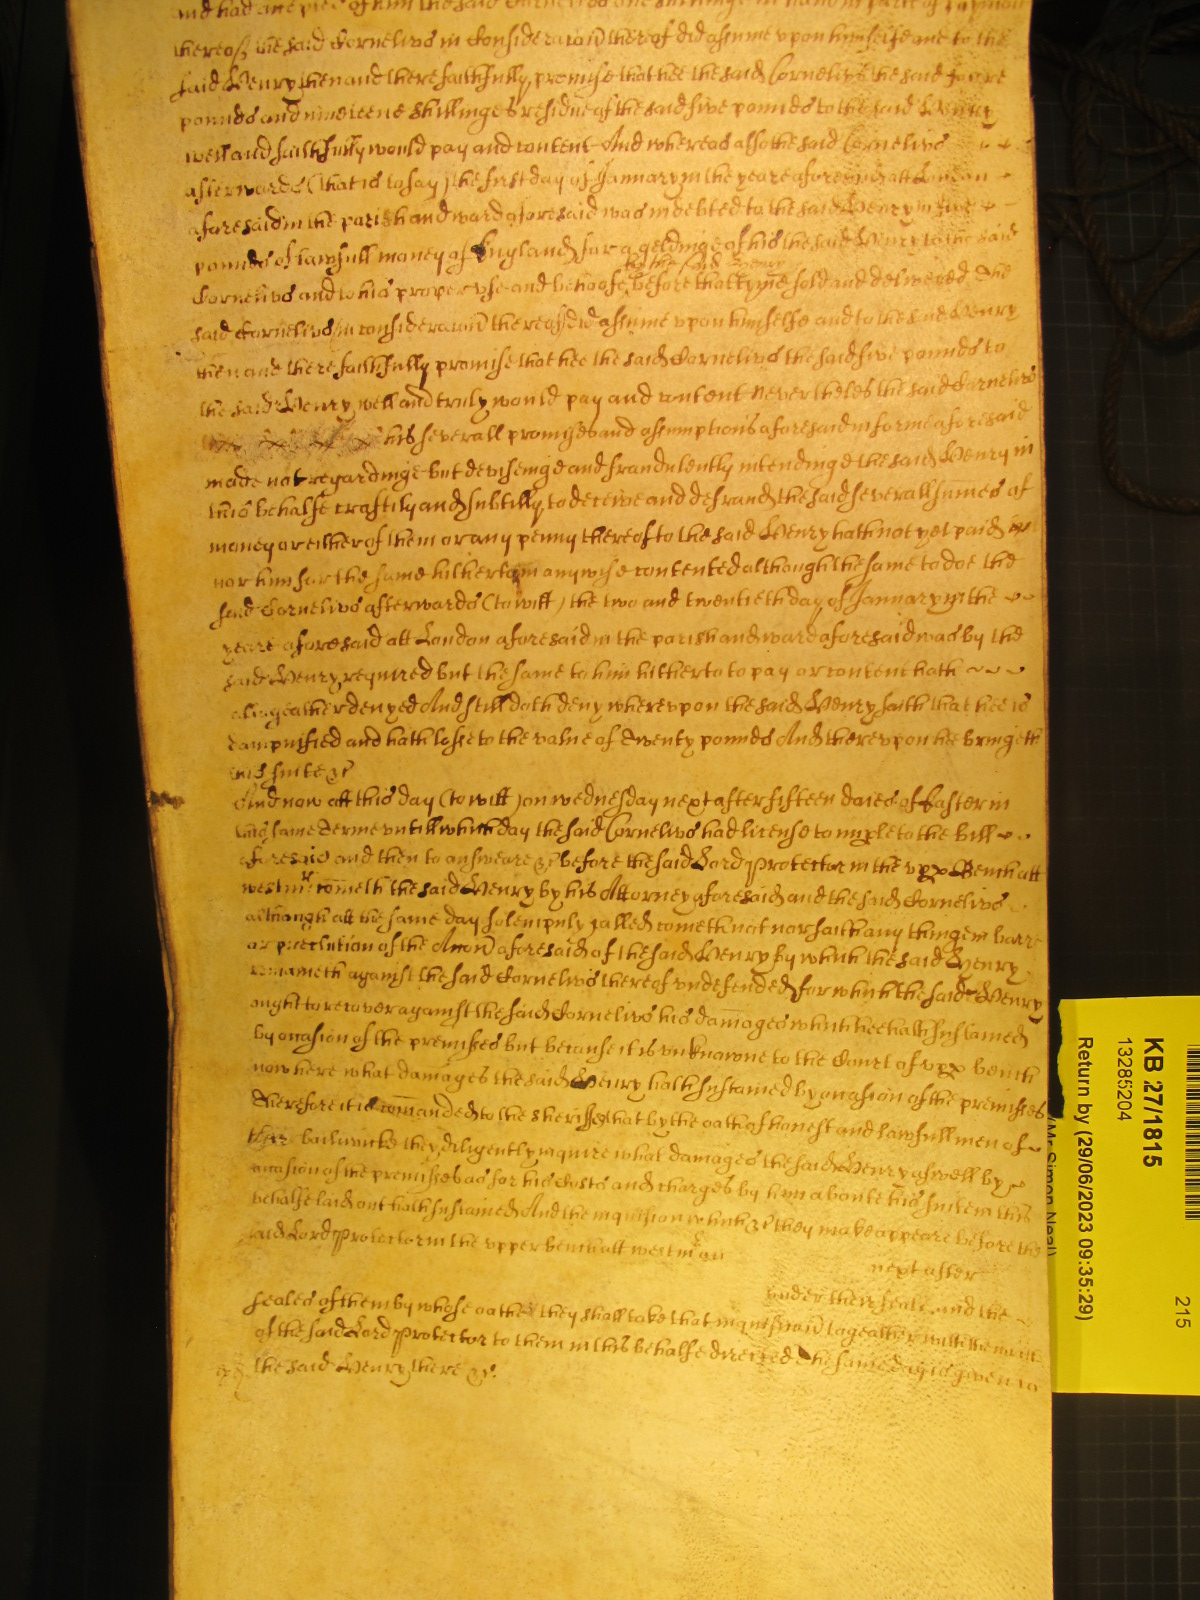 and had
thereof the said Cornelius in Consideracion thereof did assume upon himselfe and to the
said Henry then and there faithfully promise that hee the said Cornelius the said fowre
pounds and nineteene shillinges residue of the said five pounds to the said Henry
well and faithfully would pay and content And whereas also the said Cornelius
afterwards (that is to say) the first day of January in the yeare aforesaid att London
aforesaid in the parish and ward aforesaid was indebted to the said Henry in five
pounds of lawfull money of England for a geldinge of his the said Henry to the said
by the said Henry
Cornelius and to his proper use and behoofe before that tyme sold and delivered The
said Cornelius in consideracion thereof did assume upon himselfe and to the said Henry
then and there faithfully promise that hee the said Cornelius the said five pounds to
the said Henry well and truly would pay and content Neverthelesse the said Cornelius
his severall promises and assumptions aforesaid in forme aforesaid
made not regardinge but deviseinge and fraudulently intendinge the said Henry in
this behalfe craftily and subtilly to deceive and defraud the said severall summes of
money or either of them or any penny thereof to the said Henry hath not yet paid
nor him for the same hitherto in any wise contented although the same to doe the
said Cornelius afterwards (to witt) the two and twentieth day of January in the
yeare aforesaid att London aforesaid in the parish and ward aforesaid was by the
said Henry required but the same to him hitherto to pay or content hath
altogeather denyed And still doth deny whereupon the said Henry saith that hee is
dampnified and hath losse to the value of Twenty pounds And thereupon hee bringeth
this suite &c
And now att this day (to witt) on wednesday next after fifteen daies of Easter in
this same Terme untill which day the said Cornelius had license to imple to the bill
aforesaid and then to answeare &c before the said Lord Protector in the upp Bench att
westmr cometh the said Henry by his Attorney aforesaid and the said Cornelius
although att the same day solempnly called cometh not nor saith any thinge in barre
or preclusion of the Accon aforesaid of the said Henry by which the said Henry
remaineth against the said Cornelius thereof undefended for which the said Henry
ought to recover against the said Cornelius his damages which hee hath sustained
by occasion of the premisses but because it is unknowne to the Court of upp bench
now here what damages the said Henry hath sustained by occasion of the premisses
Therefore it is comanded to the Sheriffes that by the oath of honest and lawfull men of
their bailiwicke they diligently inquire what damages the said Henry aswell by
occasion of the premisses as for his Costs and charges by him aboute his suite in this
behalfe laid out hath sustained And the inquisition which &c they make appeare before the
said Lord Protector in the upper bench att westmr on
next after
under their seales and the
seales of them by whose oathes they shall take that inquisition togeather with the writt
of the said Lord Protector to them in this behalfe directed the same day is given to
the said Henry there &c.
KB 27/1815
13285204
Return by (29/06/2023 09:35:29)
(Mr Simon Neal)
215